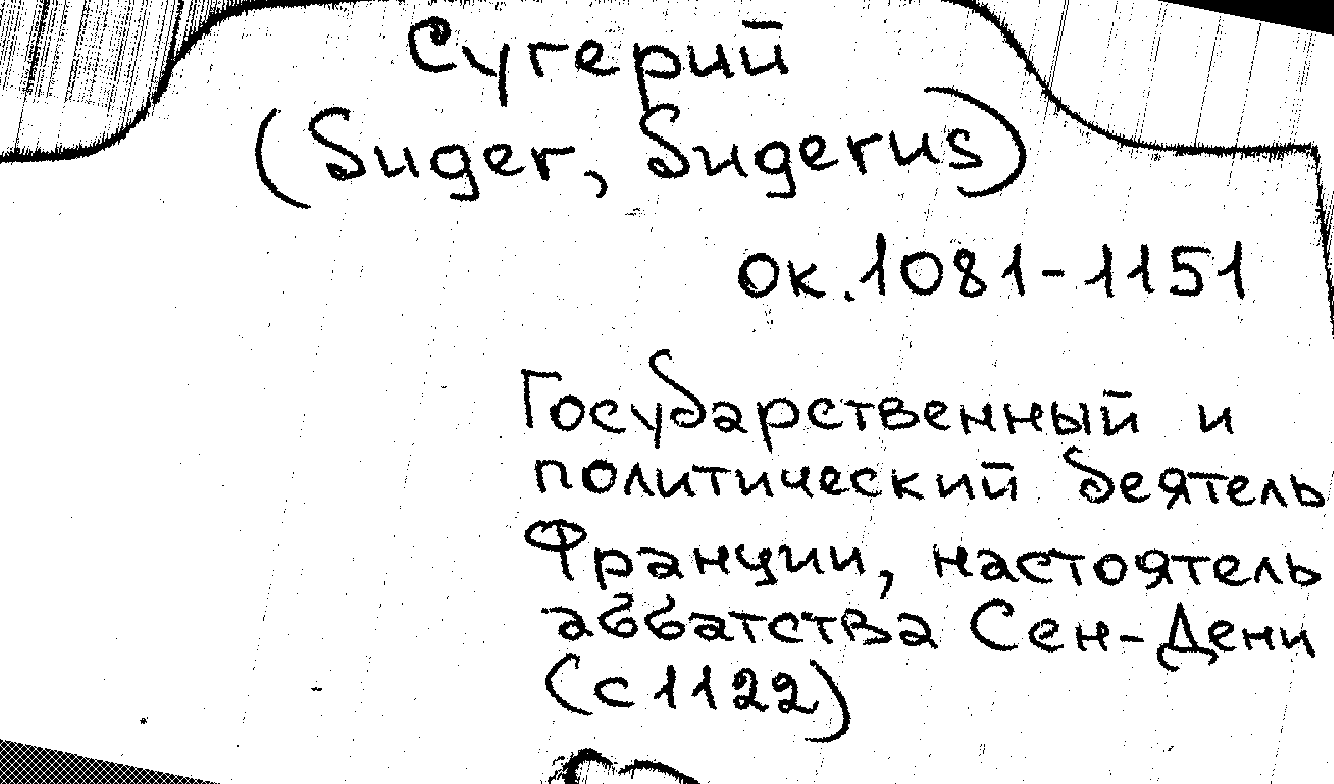 Сугерий
(Suger, Sugerus)
ок.1081-1151
Государственный и
политический деятель
Франции, настоятель
аббатства Сен-Дени
(с 1122)